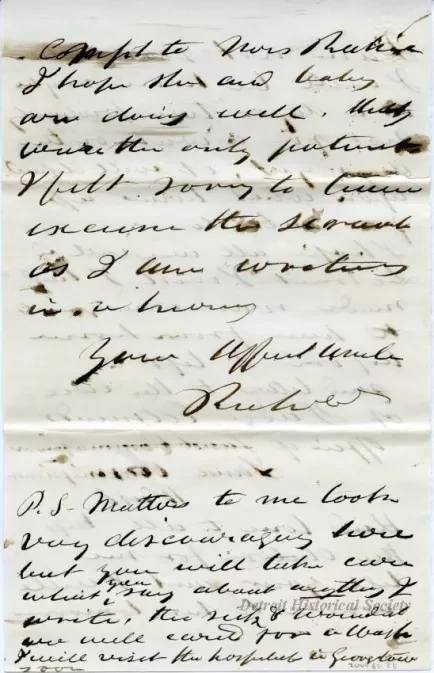 Compts to Mrs
I hope she and baby
are doing well. they
were the only patients
I felt sorry to leave
excuse this scrawl
as I am writing
in a hurry
Your Affect Uncle
P.S. Matters to me look
very discouraging here
but you will take care
what you say about anything I
write, the sick & wounded
are well cared for at Wash
I will visit the hospitals in Georgetown
soon
Detroit Historical Society